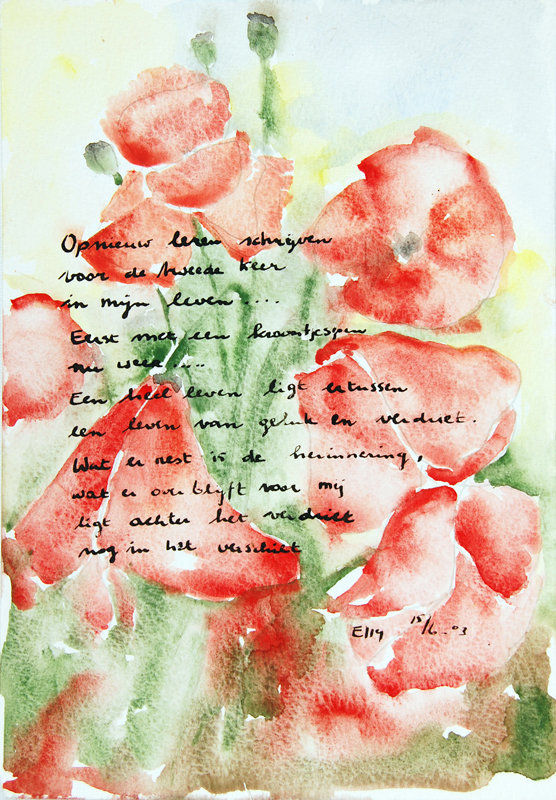 Opnieuw leren schrijven
voor de tweede keer
in mijn leven ....
Eerst met een kroontjespen
nu weer....
Een heel leven ligt ertussen
een leven van geluk en verdriet.
Wat er rest is de herinnering,
wat er overblijft voor mij
ligt achter het verdriet
nog in het verschiet
Elly 15/6.03